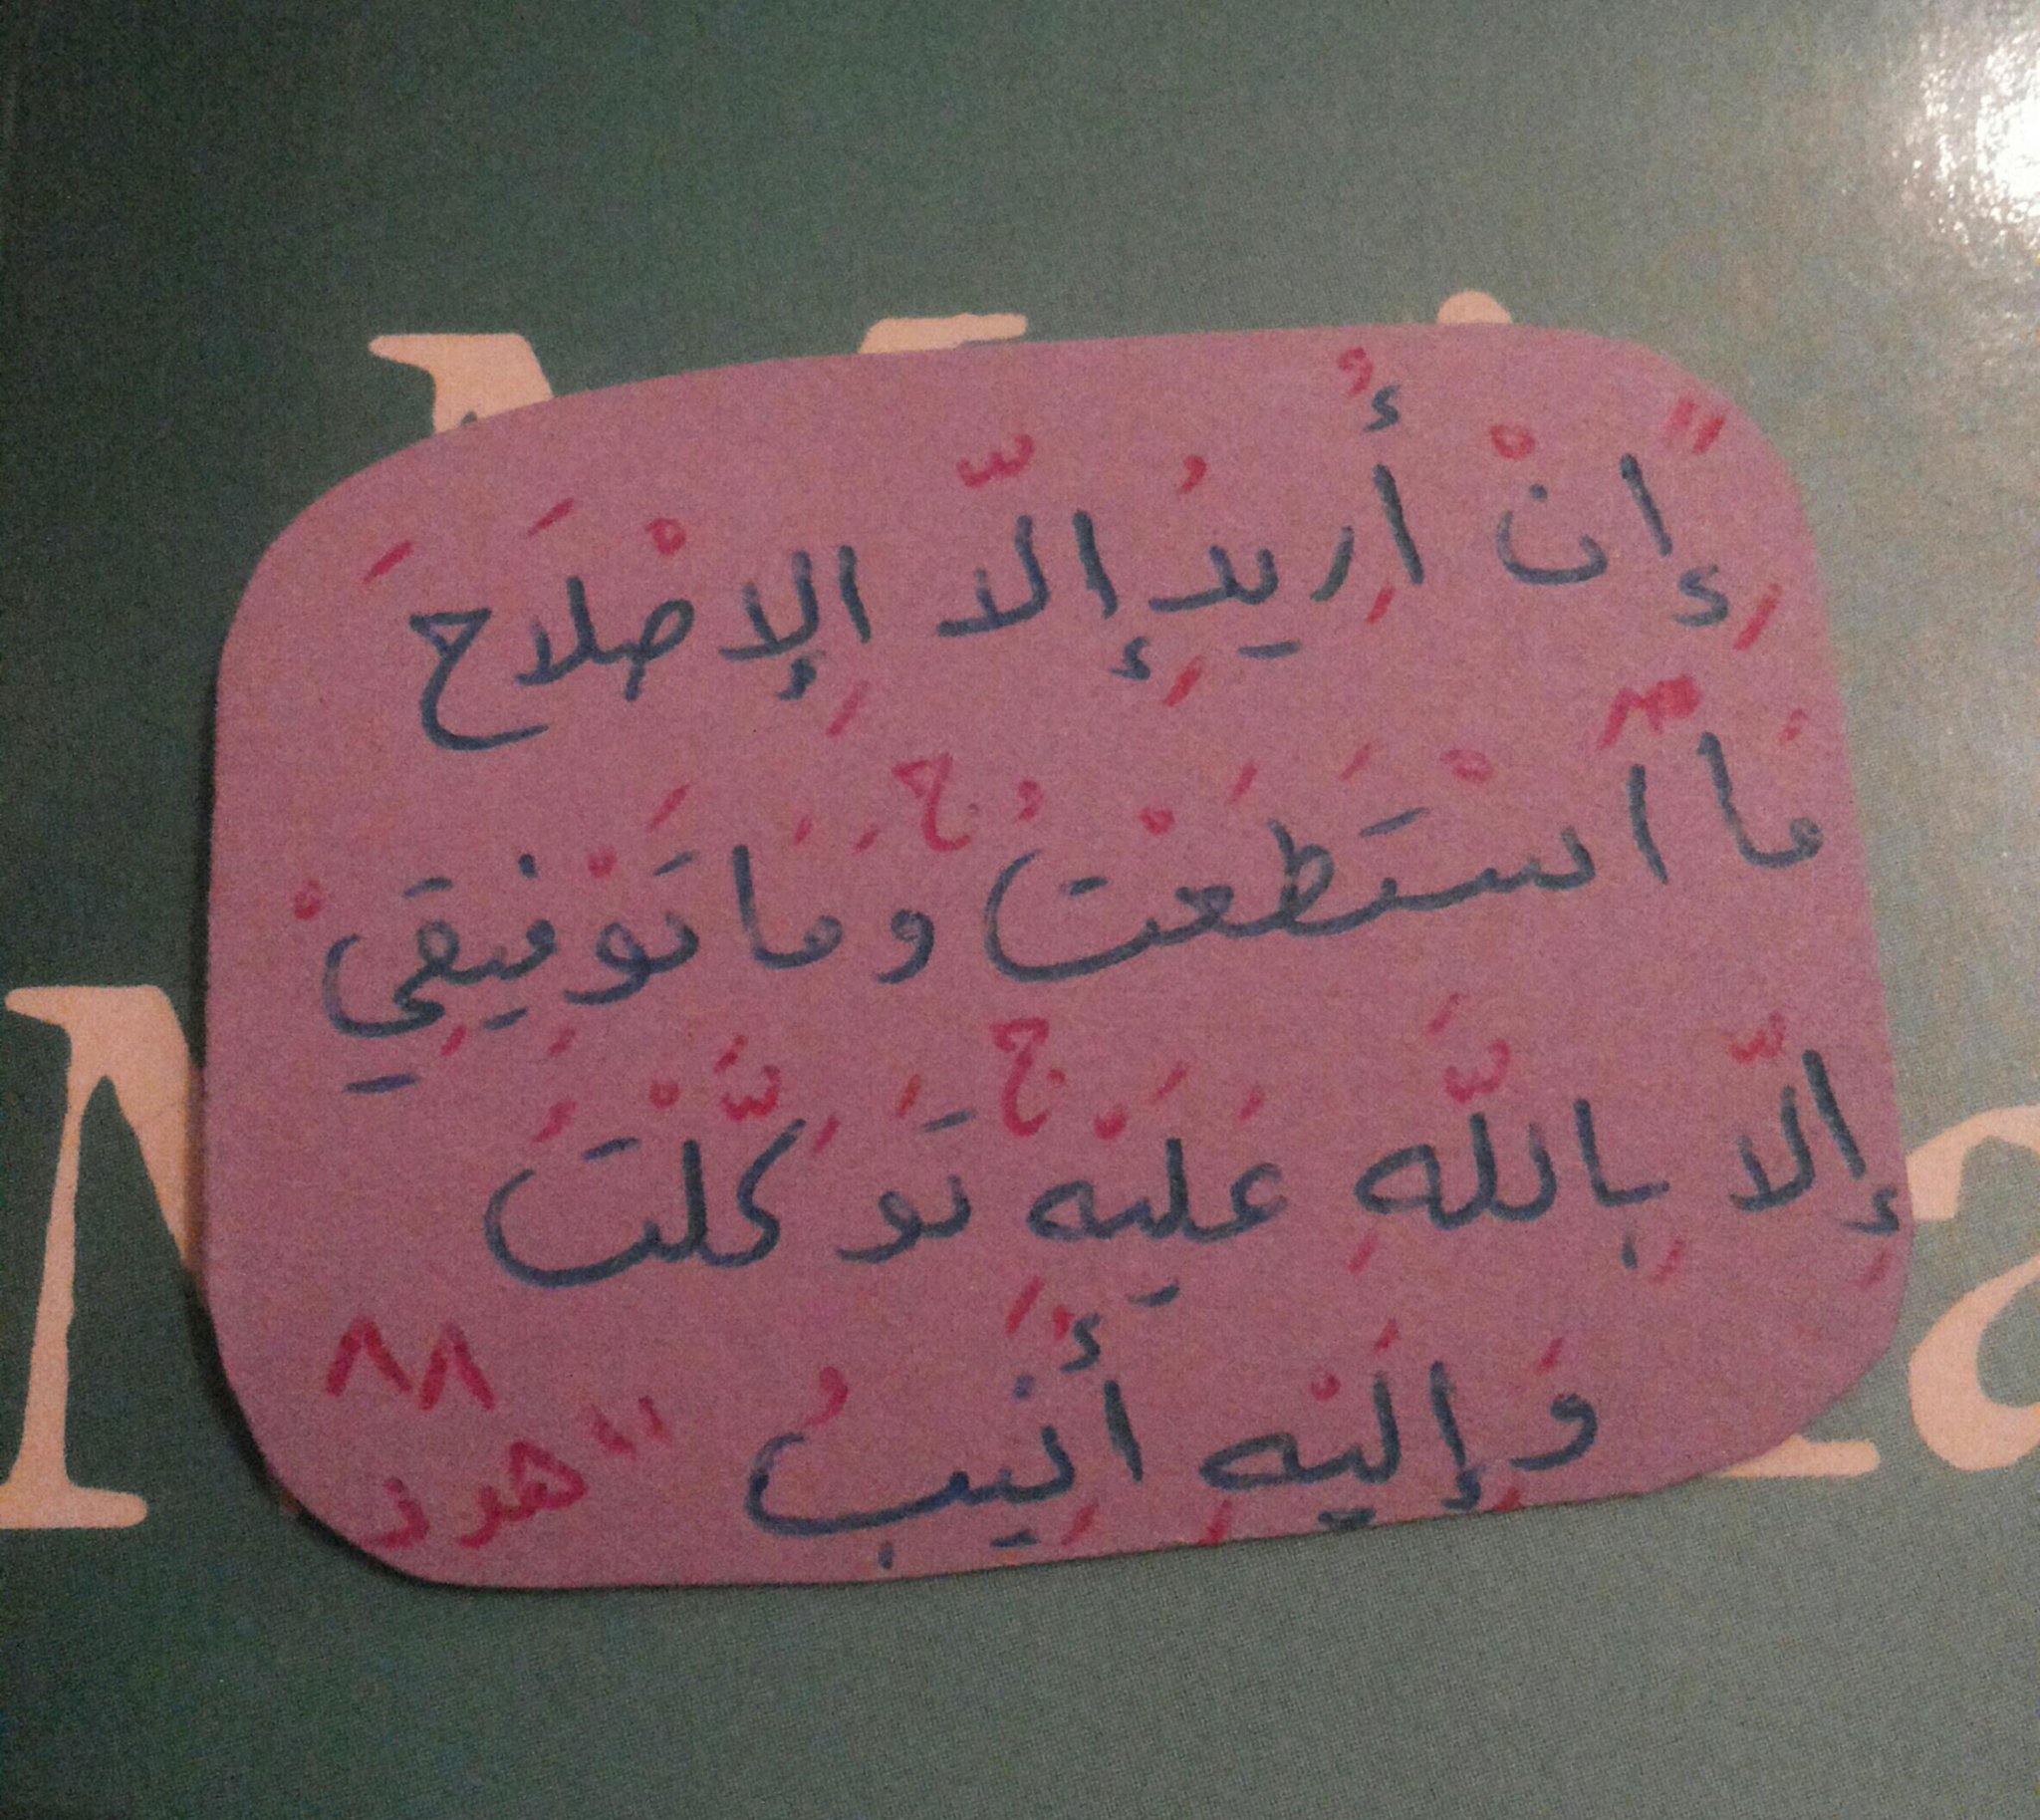 "إِنْ أُرِيدُ إِلّا الإِصْلَاحَ
مَا اسْتَطَعْتُ ۚ وَمَا تَوْفِيقِيْ
إِلّا بِاللَّهِ عَلَيْهِ ۚ تَوَكَّلْتُ
وَإِلَيْهِ أُنِيبُ" ٨٨